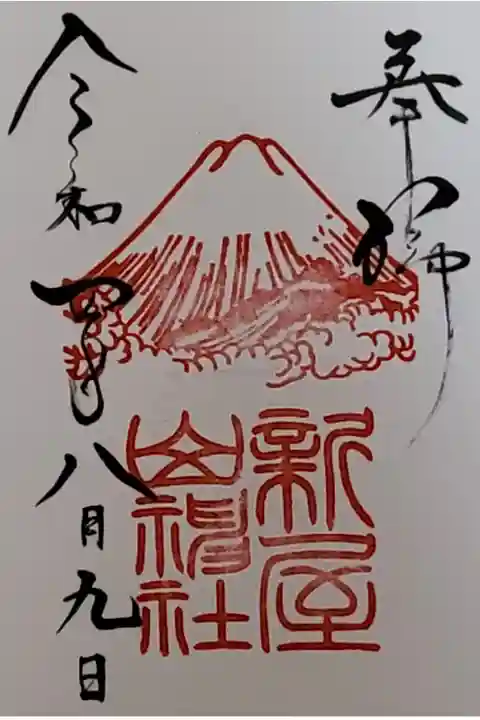 奉拝
新屋
山神社
令和四年八月九日